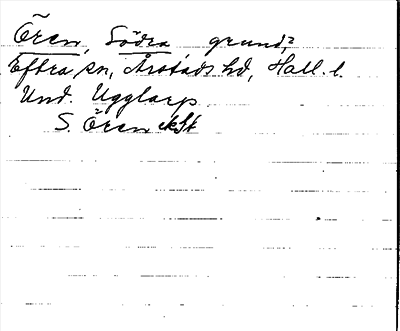 Ören, Södra, grund?
Eftra sn, Årstads hd, Hall. l.
Und. Ugglarp
S. Ören ekSk